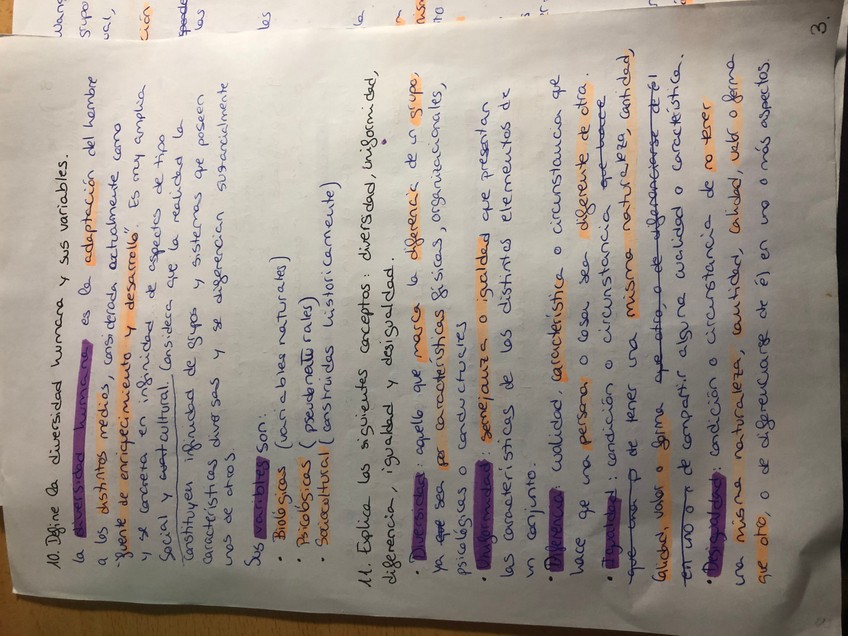 10. Define la diversidad humana y sus variables.
La diversidad humana es la adaptación del hombre
a los distintos medios, considerada actualmente como
"fuente de enriquecimiento y desarrollo". Es muy amplia
y se concreta en infinidad de aspectos de tipo
social y cultural. Considera que la realidad la
constituyen infinidad de grupos y sistemas que poseen
características diversas y se diferencian sustancialmente
unos de otros
Sus variables son:
• Biológicas (variables naturales)
• Psicológicas (pseudonaturales)
• Sociocultural (construidas históricamente)
11. Explica los siguientes conceptos: diversidad, uniformidad,
diferencia, igualdad y desigualdad.
• Diversidad: aquello que marca la diferencia de un grupo,
ya sea por características físicas, organizacionales,
psicológicas o conductuales
• Uniformidad: semejanza o igualdad que presentan
las características de los distintos elementos de
un conjunto.
• Diferencia: cualidad, característica o circunstancia que
hace qe una persona o cosa sea diferente de otra.
• Igualdad: condición o circunstancia que hace
que una p de tener una misma naturaleza, cantidad,
calidad, valor o forma que otro, o de diferenciarse de él
en uno o de compartir alguna cualidad o característica.
• Desigualdad: condición o circunstancia de no tener
una misma naturaleza, cantidad, calidad, valor o forma
que otro, o de diferenciarse de él en uno o más aspectos.
3.